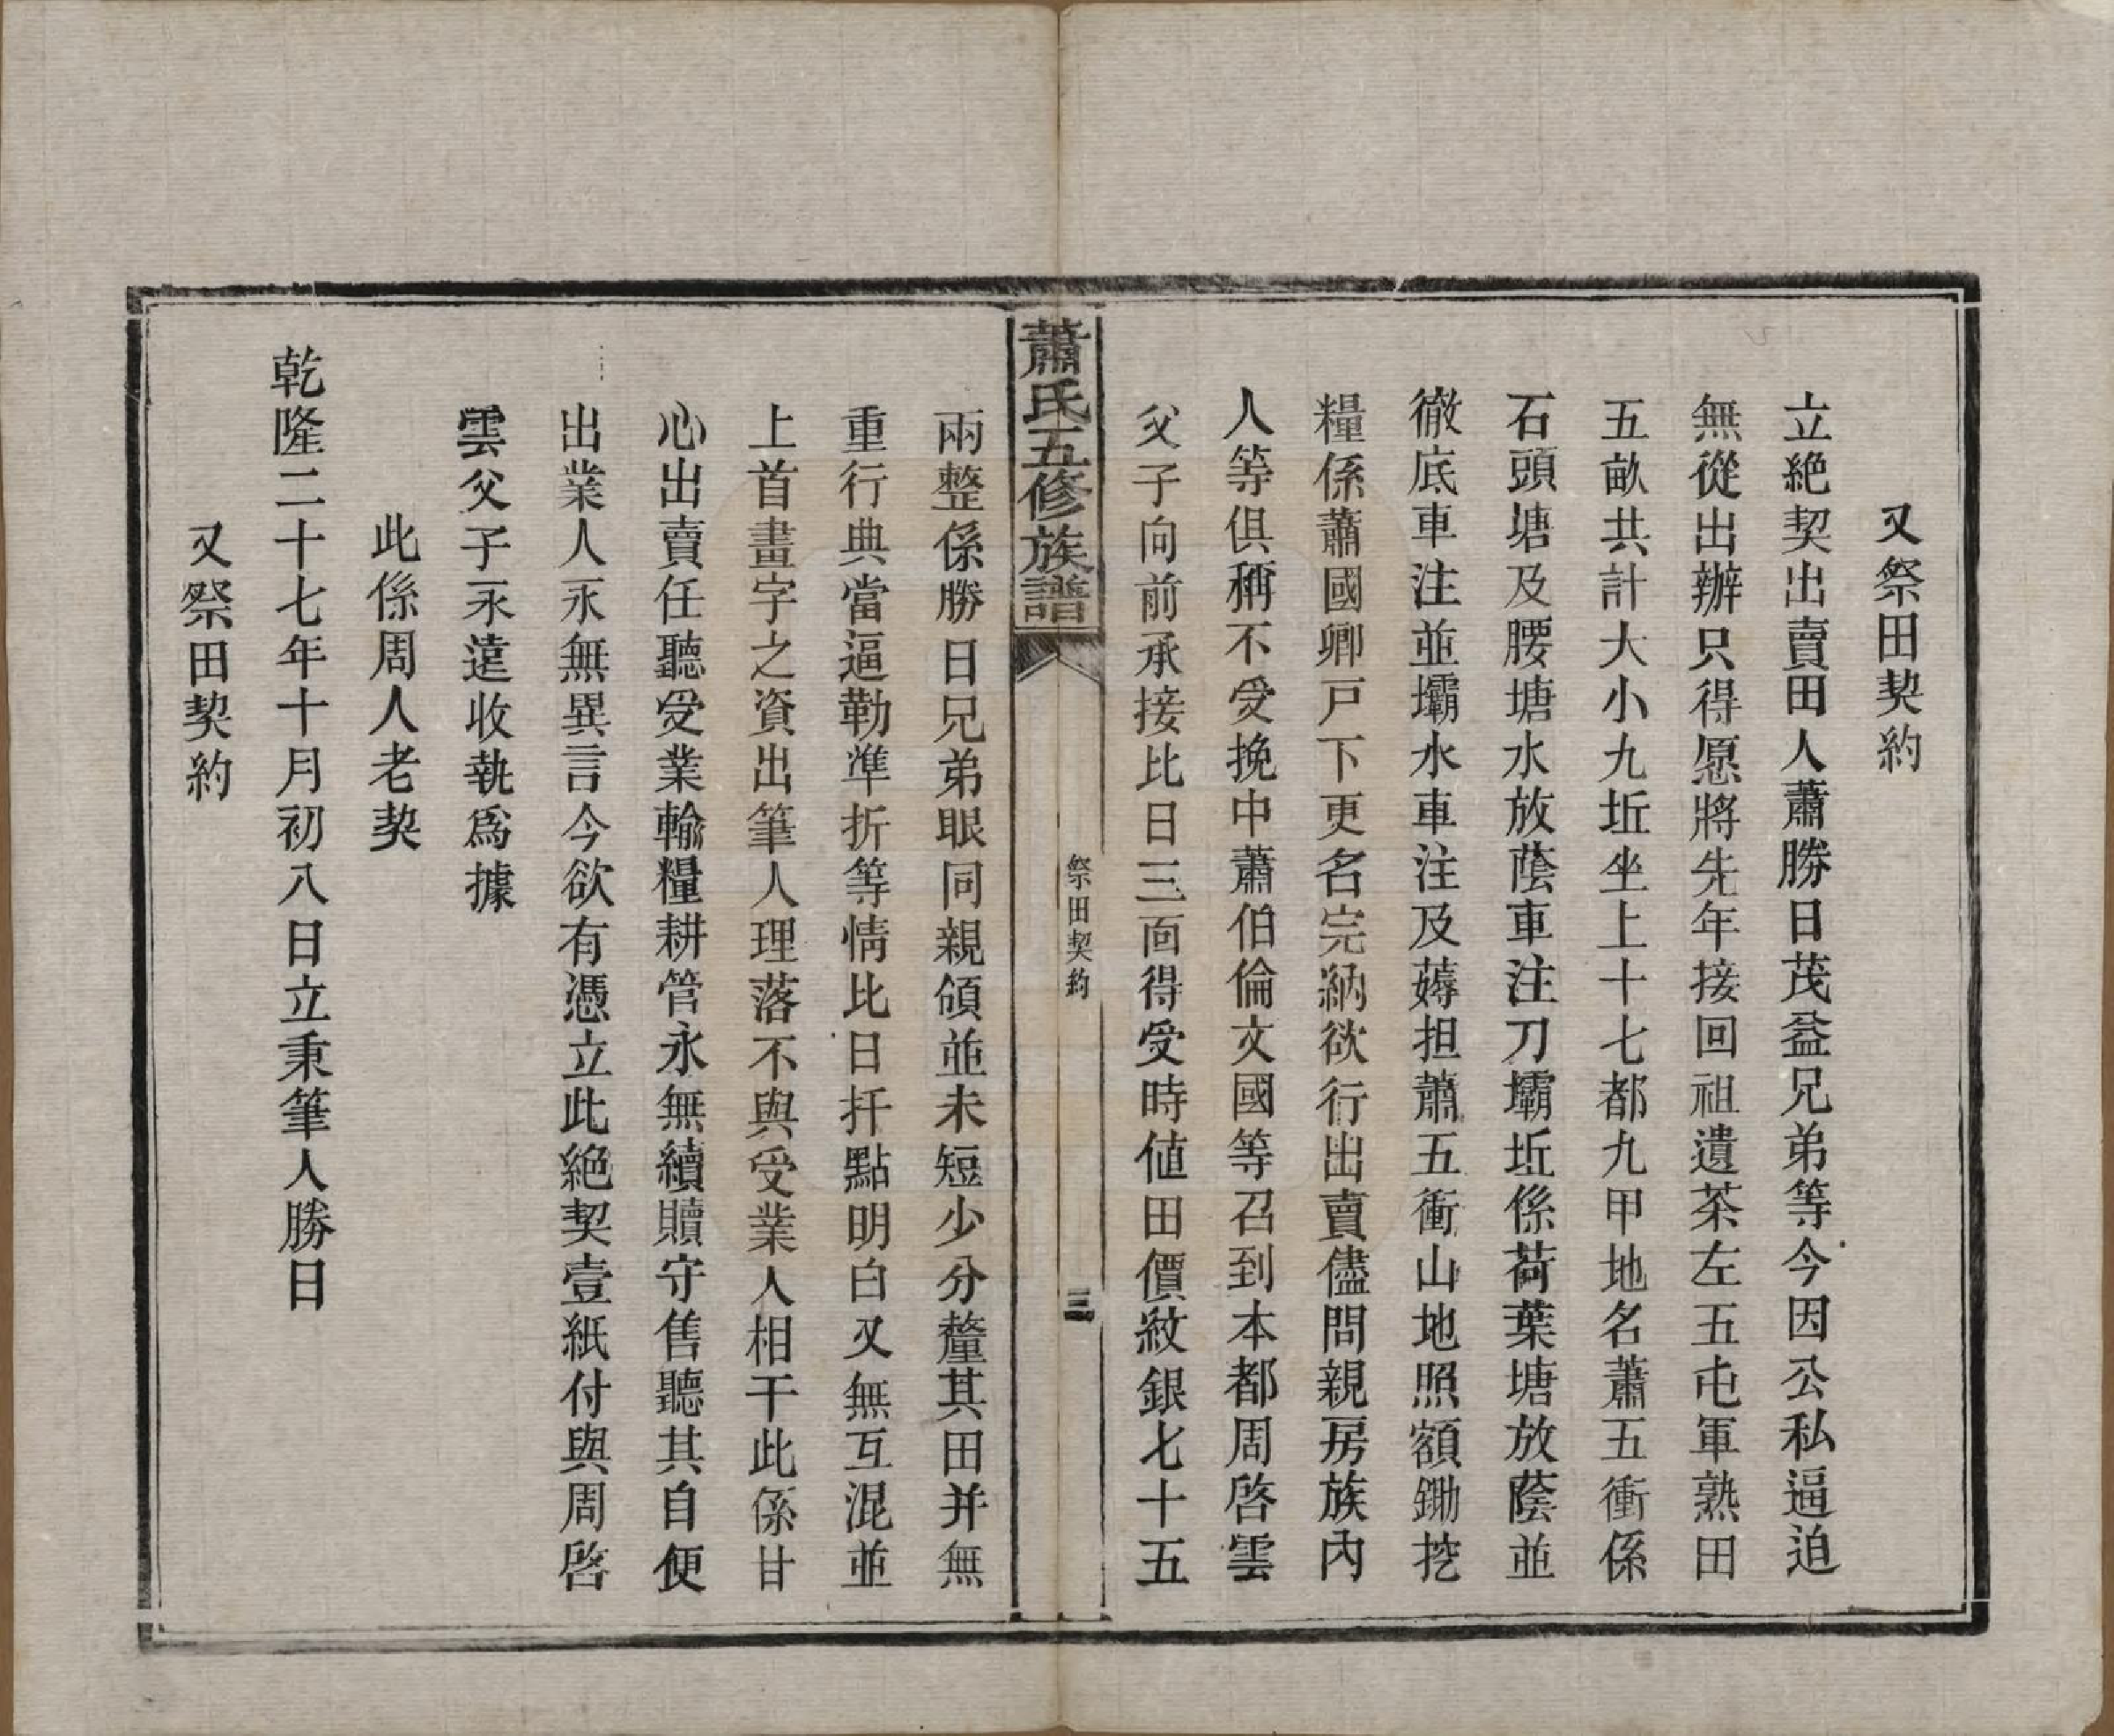 又祭田契約
立絶契出賣田人蕭勝日茂益兄弟等今因公私逼迫
無從出辦只得愿將先年接回祖遺茶左五屯軍熟田
五畝共計大小九坵坐上十七都九甲地名蕭五衝係
石頭塘及腰塘水放蔭車注刀壩坵係荷葉塘放蔭並
徹底車注並壩水車注及薅担蕭五衝山地照額鋤挖
糧係蕭國卿戸下更名完納欲行出賣儘問親房族內
人等俱稱不受挽中蕭伯倫文國等召到本都周啓雲
父子向前承接比日三面得受時値田價紋銀七十五
蕭氏五修族譜
祭田契約
三
兩整係勝日兄弟眼同親領並未短少分釐其田并無
重行典當逼勒準折等情比日扦點明白又無互混並
上首畫字之資出筆人理落不與受業人相干此係甘
心出賣任聽受業輸糧耕管永無續贖守售聽其自便
出業人永無異言今欲有憑立此絶契壹紙付與周啓
雲父子永遠收執爲據
此係周人老契
乾隆二十七年十月初八日立秉筆人勝日
又祭田契約